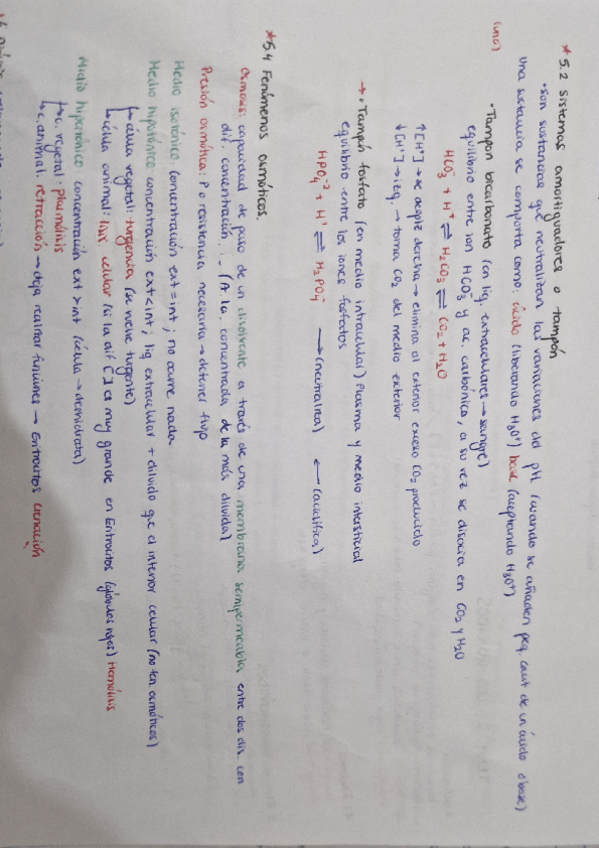 * 5.2 Sistemas amortiguadores o tampón
• Son sustancias que neutralizan las variaciones del pH (cuando se añaden peq. cant de un ácido o base)
una sustancia se comporta como: ácido (liberando H₃O⁺) base (aceptando H₃O⁺)
(una)
• Tampon bicarbonato (en liq. extracelulares → sangre)
equilibrio entre ion HCO₃⁻ y ac. carbónico, a su vez se disocia en CO₂ y H₂O
HCO₃⁻ + H⁺ ⇌ H₂CO₃ ⇌ CO₂ + H₂O
↑[H⁺] → se desplz derecha → elimina al exterior exceso CO₂ producido
↓[H⁺] → izq. → toma CO₂ del medio exterior
→ • Tampón fosfato (en medio intracelular) Plasma y medio intersticial
equilibrio entre los iones fosfatos
HPO₄⁻² + H⁺ ⇌ H₂PO₄⁻ → (neutraliza) ← (acidifica)
* 5.4 Fenómenos osmóticos.
Osmosis: capacidad de paso de un disolvente a través de una membrana semipermeable, entre dos dis. con
dif concentración. - (A la concentrada de la más diluida)
Presión osmótica: P o resistencia necesaria → detener flujo
Medio isotónico: Concentración ext = int ; no ocurre nada
Medio hipotónico: concentración ext < int ; liq extracelular + diluido que el interior celular (no fen. osmóticos)
↳ célula vegetal: turgencia (se vuelve turgente)
↳ célula animal: lisis celular (si la dif [ ] es muy grande en Eritrocitos (glóbulos rojos) Hemólisis
Medio hipertónico: concentración ext > int (célula → deshidrata)
↳ c. vegetal: plasmólisis
↳ c. animal: retracción → deja realizar funciones → Eritrocitos crenación